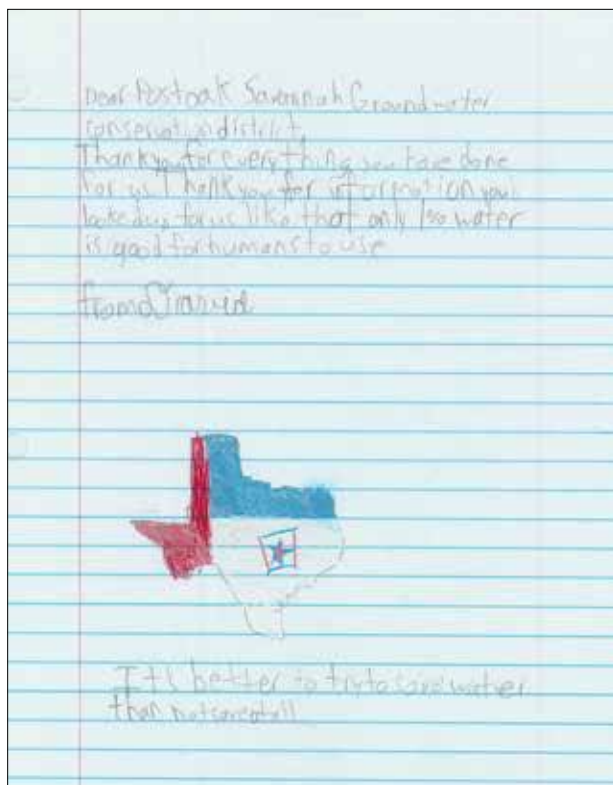 Dear Post oak Savannah Groundwater
conservation district,
Thank you for everything you have done
for us Thank you for information you
looked up for us like that only 1% water
is good for humans to use
from
It's better to try to save water
than not save at all